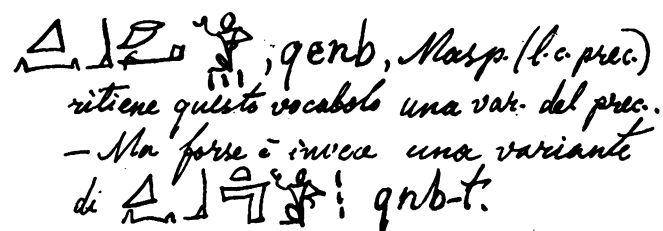 , qenb, Masp. (l. c. prec.)
ritiene questo vocabolo una var. del prec.
— Ma forse è invece una variante
di qnb-t.